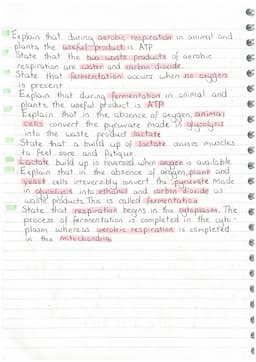 Explain that during aerobic respiration in animal and
plants the useful product is ATP
State that the two waste products of aerobic
respiration are water and carbon dioxide.
State that fermentation occurs when no oxygen
is present
Explain that during fermentation in animal and
plants, the useful product is ATP
Explain that in the absence of oxygen, animal
cells convert the pyruvate made in glycolysis
into the waste product lactate
State that a build up of lactate causes muscles
to feel sore and fatigue
Lactate build up is reversed when oxygen is available
Explain that in the absence of oxygen, plant and
yeast cells irreversibly convert the pyruvate made
in glycolysis into ethanol and carbon dioxide as
waste products. This is called fermentation
State that respiration begins in the cytoplasm. The
process of fermentation is completed in the cyto-
plasm whereas aerobic respiration is completed
in the mitochondria